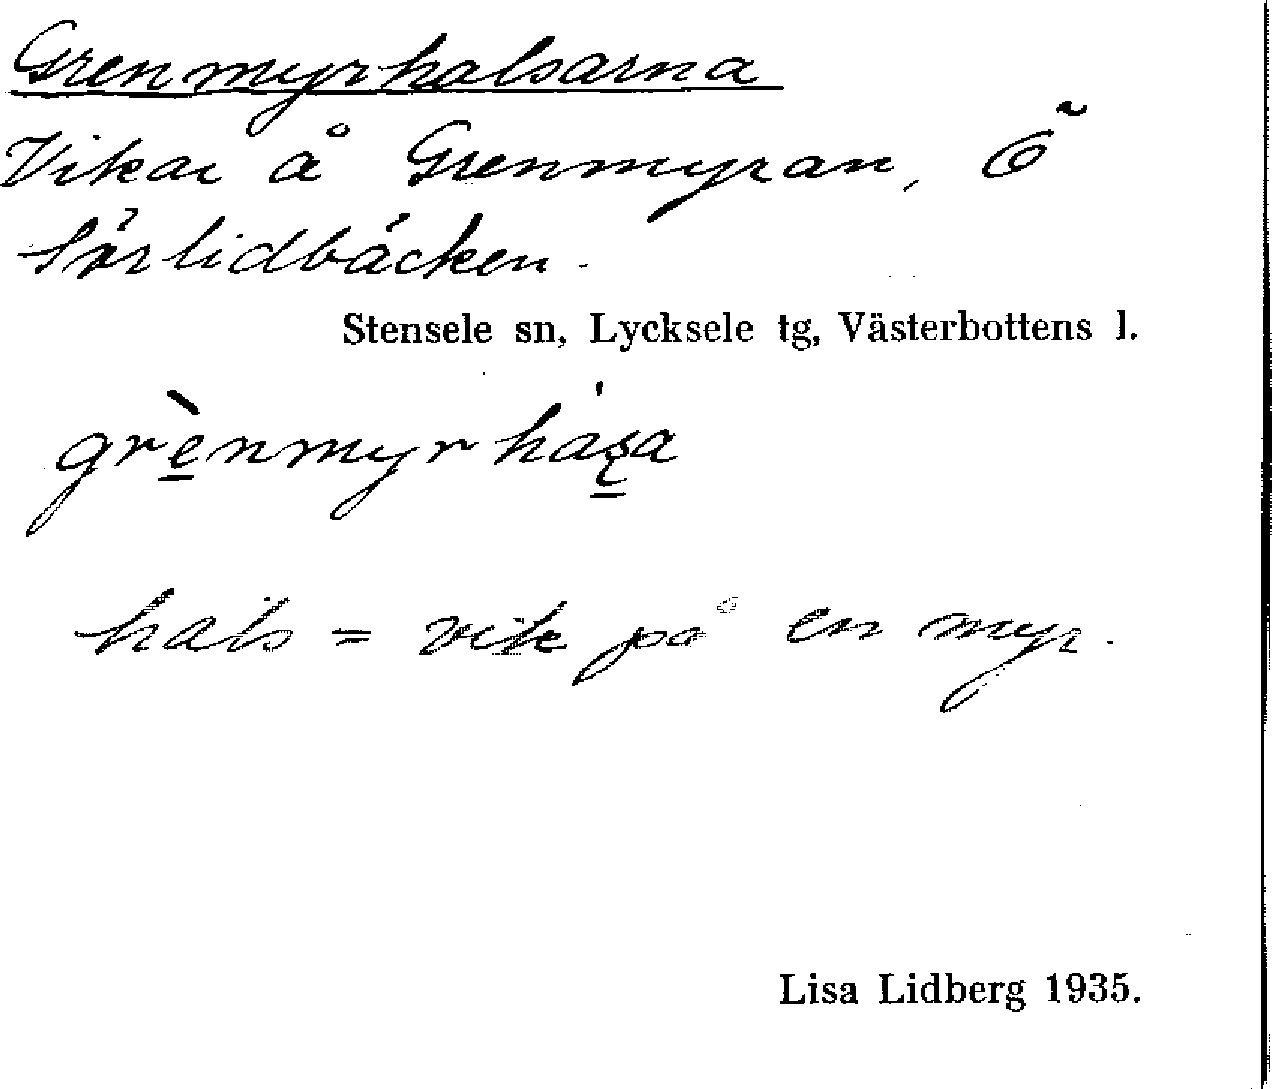 Grenmyrhalsarna
Vikar å Grenmyran, Ö
Sörlidbäcken.
Stensele sn, Lycksele tg, Västerbottens l.
hals = vik på en myr.
Lisa Lidberg 1935.